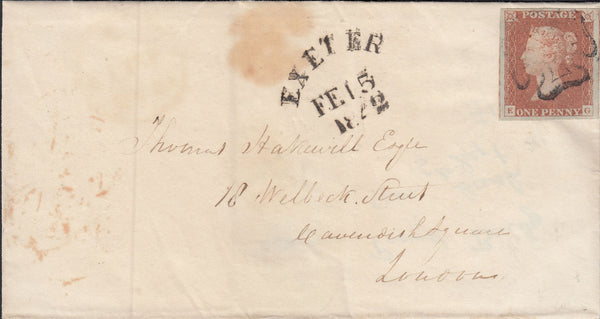 EXETER
FE 15
1842
POSTAGE
ONE PENNY
G
Thomas Hakewill Esqre
18 Welbeck Street
Cavendish Square
London